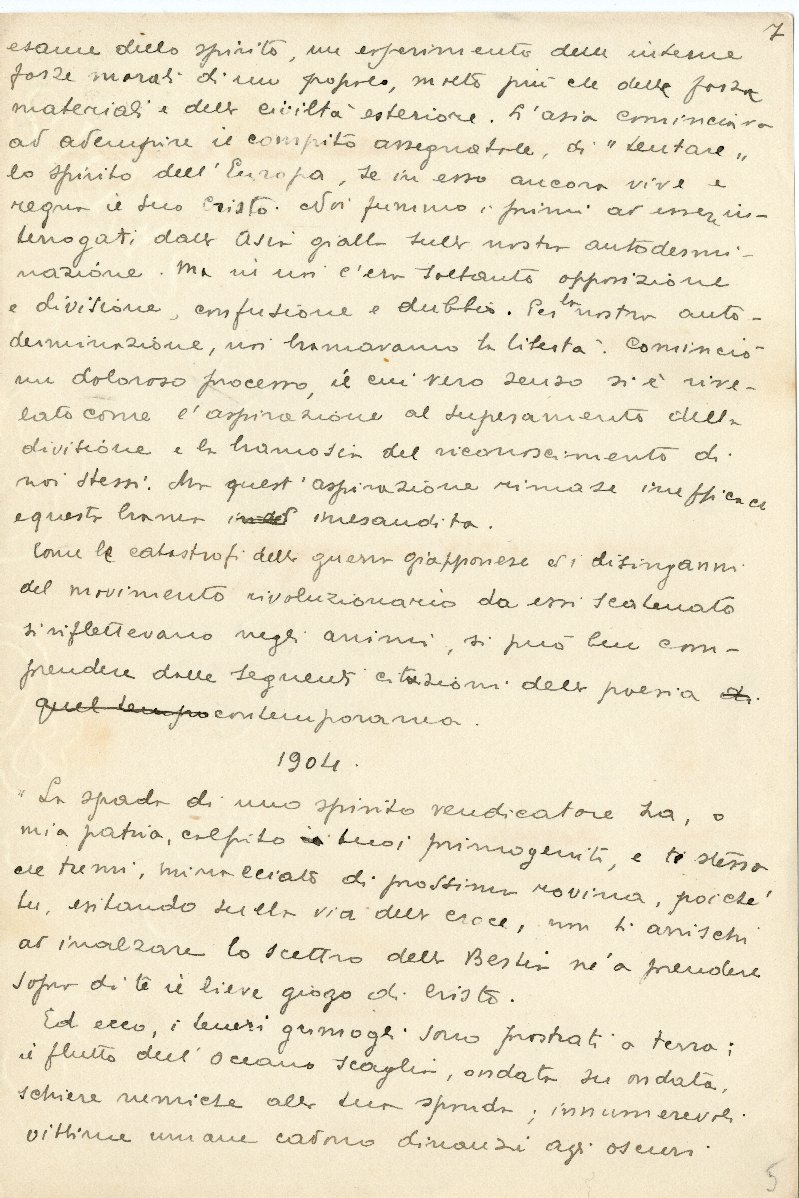 7
esame dello spirito, un esperimento delle interne
forze morali di un popolo, molto più che delle forze
materiali e della civiltà esteriore. L'Asia cominciava
ad adempire il compito assegnatole, di "tentare"
lo spirito dell'Europa, se in esso ancora vive e
regna il suo Cristo. Noi fummo i primi ad essere in-
terrogati dall' Asia gialla sulla nostra autodermi-
nazióne. Ma in noi c'era soltanto opposizione
e divisione, confusione e dubbio. Per la nostra auto-
derminazione, noi bramavamo la libertà. Cominciò
un doloroso processo, il cui vero senso si è rive-
lato come l'aspirazione al superamento della
divisióne e la bramosia del riconoscimento di
noi stessi. Ma quest'aspirazione rimase inefficace
e questa brama inesaudita.
Come le catastrofi della guerra giapponese ed i disinganni
del movimento rivoluzionario da essi scatenato
si riflettevano negli animi, si può ben com-
prendere dalle seguenti citazioni della poesia di
quel tempo contemporanea.
1904.
"La spada di uno spirito vendicatore ha, o
mia patria, colpito i tuoi primogeniti, e te stessa
che tremi, minacciato di prossima rovina, poiche'
tu, esitando sulla via della croce, non ti arrischi
ad inalzare lo scettro della Bestia ne' a prendere
sopra di te il lieve giogo di Cristo.
Ed ecco, i teneri germogli sono prostrati a terra;
il flutto dell'Oceano scaglia, ondata su ondata,
schiere nemiche alla tua sponda; innumerevoli
vittime umane cadono dinanzi agli oscuri
5